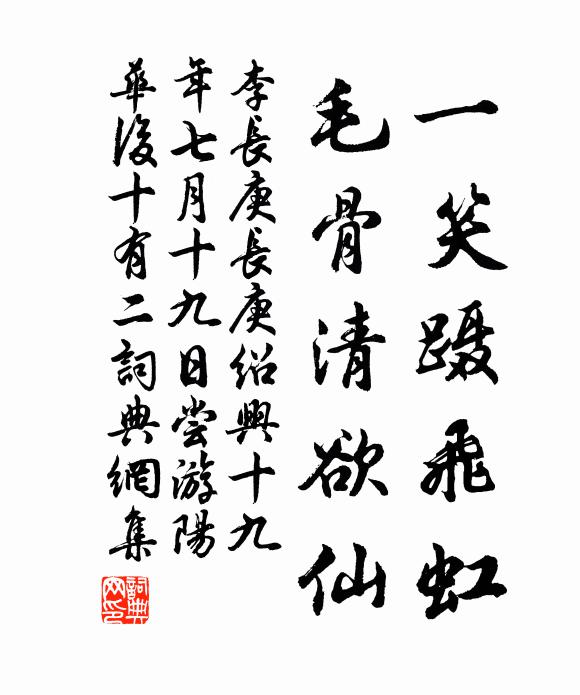 一笑蹑飛虹
毛骨清欲仙
李長庚長庚绍興十九
年七月十九日尝游陽
華後十有二詞典網集
詞典
网印